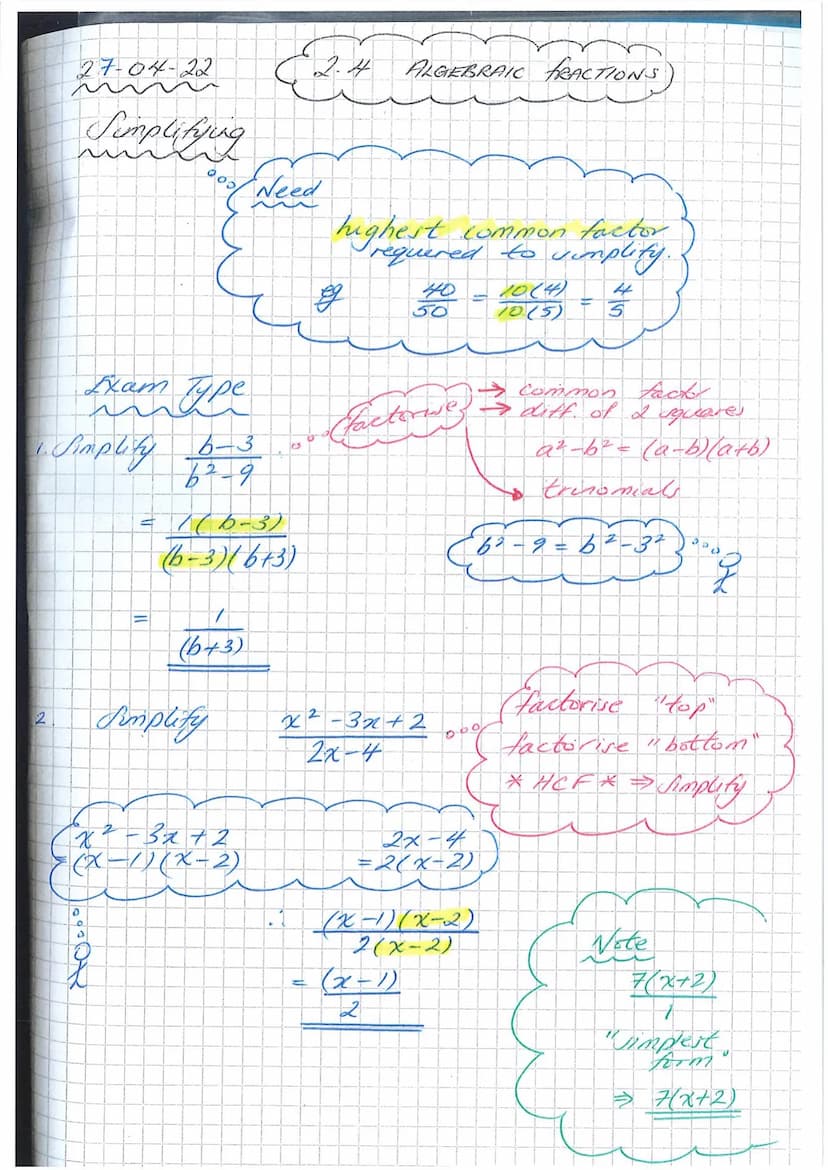 27-04-22
2.4 ALGEBRAIC FRACTIONS
Simplifying
Need
highest common factor
required to simplify.
eg 40/50 = 10(4)/10(5) = 4/5
Exam Type
factorise
→ common factor
→ diff. of 2 squares
a² - b² = (a-b)(a+b)
→ trinomials
1. Simplify (b-3)/(b²-9)
= 1(b-3)/(b-3)(b+3)
b² - 9 = b² - 3²
= 1/(b+3)
2. Simplify (x² - 3x + 2)/(2x - 4)
factorise "top"
factorise "bottom"
* HCF * ⇒ simplify
x² - 3x + 2
= (x-1)(x-2)
2x - 4
= 2(x-2)
∴ (x-1)(x-2)/2(x-2)
= (x-1)/2
Note
7(x+2)/1
"simplest
form"
⇒ 7(x+2)